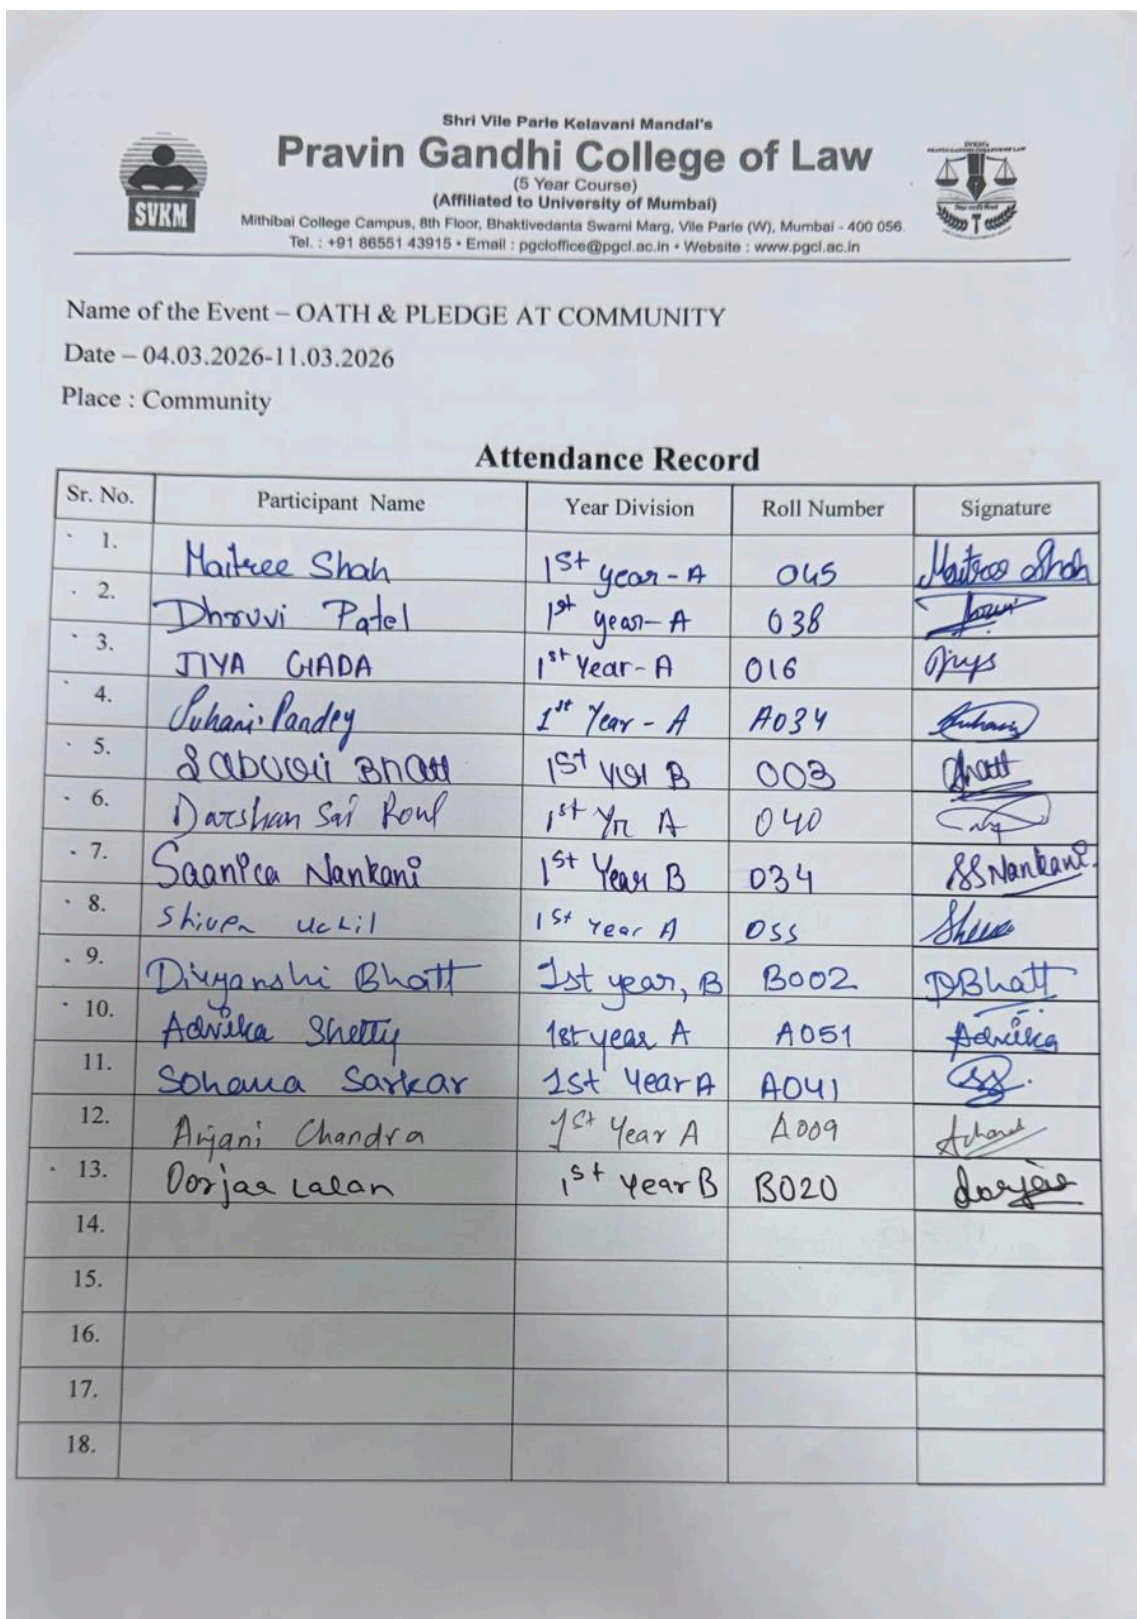 Shri Vile Parle Kelavani Mandal's
Pravin Gandhi College of Law
(5 Year Course)
(Affiliated to University of Mumbai)
Mithibai College Campus, 8th Floor, Bhaktivedanta Swami Marg, Vile Parle (W), Mumbai - 400 056.
Tel. : +91 86551 43915 • Email : pgcloffice@pgcl.ac.in • Website : www.pgcl.ac.in
SVKM
Name of the Event – OATH & PLEDGE AT COMMUNITY
Date – 04.03.2026-11.03.2026
Place : Community
Attendance Record
Sr. No. Participant Name Year Division Roll Number Signature
1. Maitree Shah 1st year - A 045 Maitree Shah
2. Dhruvi Patel 1st year - A 038
3. JIYA GADA 1st Year - A 016
4. Suhani Pandey 1st Year - A A034 Suhani
5. Saburii Bhatt 1st year B 003 Bhatt
6. Darshan Sai Roul 1st Yr A 040
7. Saanica Nankani 1st Year B 034 SSNankani.
8. Shiven Uchil 1st Year A 055
9. Divyanshi Bhatt 1st year, B B002 DBhatt
10. Advika Shetty 1st year A A051 Advika
11. Sohana Sarkar 1st Year A A041
12. Anjani Chandra 1st Year A A009
13. Dorjaa Lalan 1st Year B B020
14.
15.
16.
17.
18.